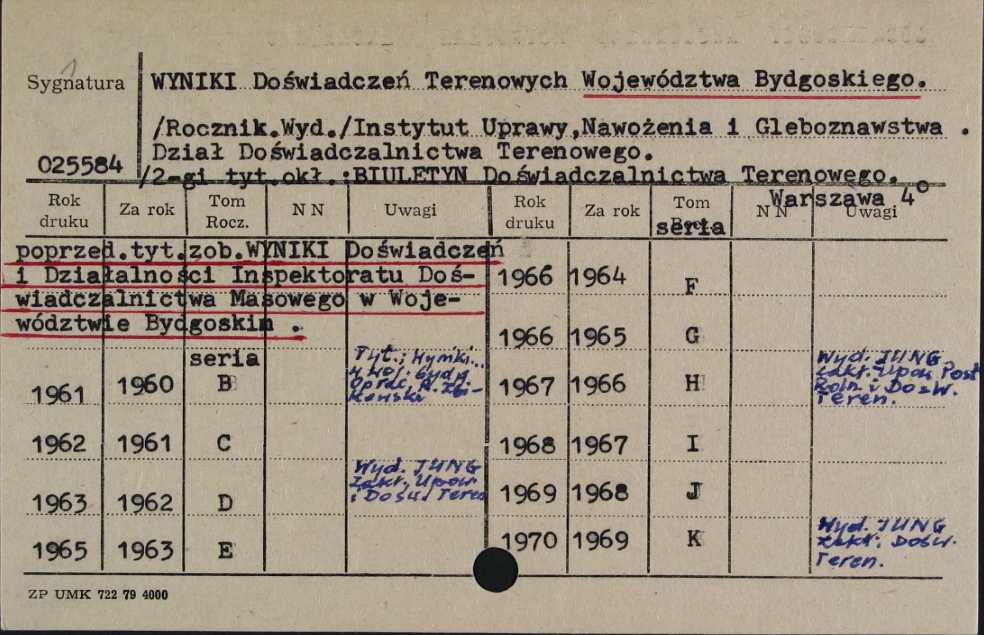 Sygnatura
WYNIKI Doświadczeń Terenowych Województwa Bydgoskiego.
/Rocznik.Wyd./Instytut Uprawy,Nawożenia i Gleboznawstwa .
Dział Doświadczalnictwa Terenowego.
025584
/2-gi tyt.okł.:BIULETYN Doświadczalnictwa Terenowego.
Warszawa 4°
Rok druku Za rok Tom Rocz. N N Uwagi Rok druku Za rok Tom seria N N Uwagi
poprzed.tyt.zob.WYNIKI Doświadczeń
i Działalności Inspektoratu Doś-
wiadczalnictwa Masowego w Woje-
wództwie Bydgoskim .
seria
1961 1960 B Tyt.: Wyniki...
w woj. bydg.
Oprac.
1962 1961 C
1963 1962 D Wyd. JUNG
Zakł. Upow.
i Dośw. Teren
1965 1963 E
1966 1964 F
1966 1965 G
1967 1966 H Wyd. JUNG
Zakł. Upow. Post
Roln. i Dośw.
Teren.
1968 1967 I
1969 1968 J
1970 1969 K Wyd. JUNG
Zakł. Dośw.
Teren.
ZP UMK 722 79 4000